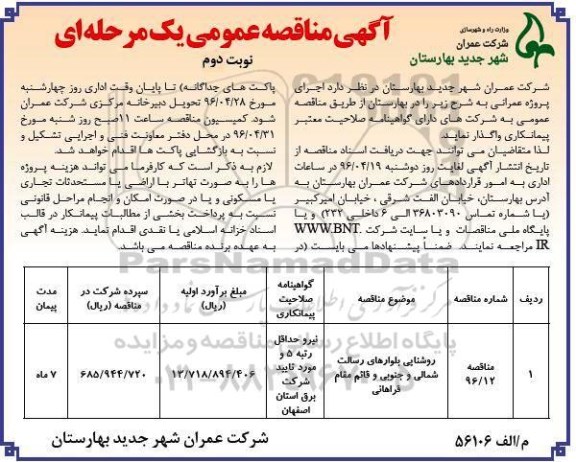 وزارت راه و شهرسازی
شرکت عمران
شهر جدید بهارستان
آگهی مناقصه عمومی یک مرحله‌ای
نوبت دوم
شرکت عمران شهر جدید بهارستان در نظر دارد اجرای
پروژه عمرانی به شرح زیر را در بهارستان از طریق مناقصه
عمومی به شرکت های دارای گواهینامه صلاحیت معتبر
پیمانکاری واگذار نماید.
لذا متقاضیان می توانند جهت دریافت اسناد مناقصه از
تاریخ انتشار آگهی لغایت روز دوشنبه ۹۶/۰۴/۱۹ در ساعات
اداری به امور قراردادهای شرکت عمران بهارستان به
آدرس بهارستان، خیابان الفت شرقی ، خیابان امیرکبیر
(با شماره تماس ۳۶۸۰۳۰۹۰ الی ۶ داخلی ۲۳۳) و یا
پایگاه ملی مناقصات و یا سایت شرکت WWW.BNT.
IR مراجعه نمایند. ضمناً پیشنهادها می بایست (در
پاکت های جداگانه) تا پایان وقت اداری روز چهارشنبه
مورخ ۹۶/۰۴/۲۸ تحویل دبیرخانه مرکزی شرکت عمران
شود. کمیسیون مناقصه ساعت ۱۱صبح روز شنبه مورخ
۹۶/۰۴/۳۱ در محل دفتر معاونت فنی و اجرایی تشکیل و
نسبت به بازگشایی پاکت ها اقدام خواهد شد.
لازم به ذکر است که کارفرما می تواند هزینه پروژه
ها را به صورت تهاتر با اراضی یا مستحدثات تجاری
یا مسکونی و یا در صورت امکان و انجام مراحل قانونی
نسبت به پرداخت بخشی از مطالبات پیمانکار در قالب
اسناد خزانه اسلامی یا نقدی اقدام نماید. هزینه آگهی
به عهده برنده مناقصه می باشد.
ParsNamadData
پایگاه اطلاع رسانی مناقصه و مزایده
ردیف
شماره مناقصه
موضوع مناقصه
گواهینامه
صلاحیت
پیمانکاری
مبلغ برآورد اولیه
(ریال)
سپرده شرکت در
مناقصه (ریال)
مدت
پیمان
۱
مناقصه
۹۶/۱۲
روشنایی بلوارهای رسالت
شمالی و جنوبی و قائم مقام
فراهانی
نیرو حداقل
رتبه ۵ و
مورد تایید
شرکت
برق استان
اصفهان
۱۳/۷۱۸/۸۹۴/۴۰۶
۶۸۵/۹۴۴/۷۲۰
۷ ماه
م/الف ۵۶۱۰۶
شرکت عمران شهر جدید بهارستان